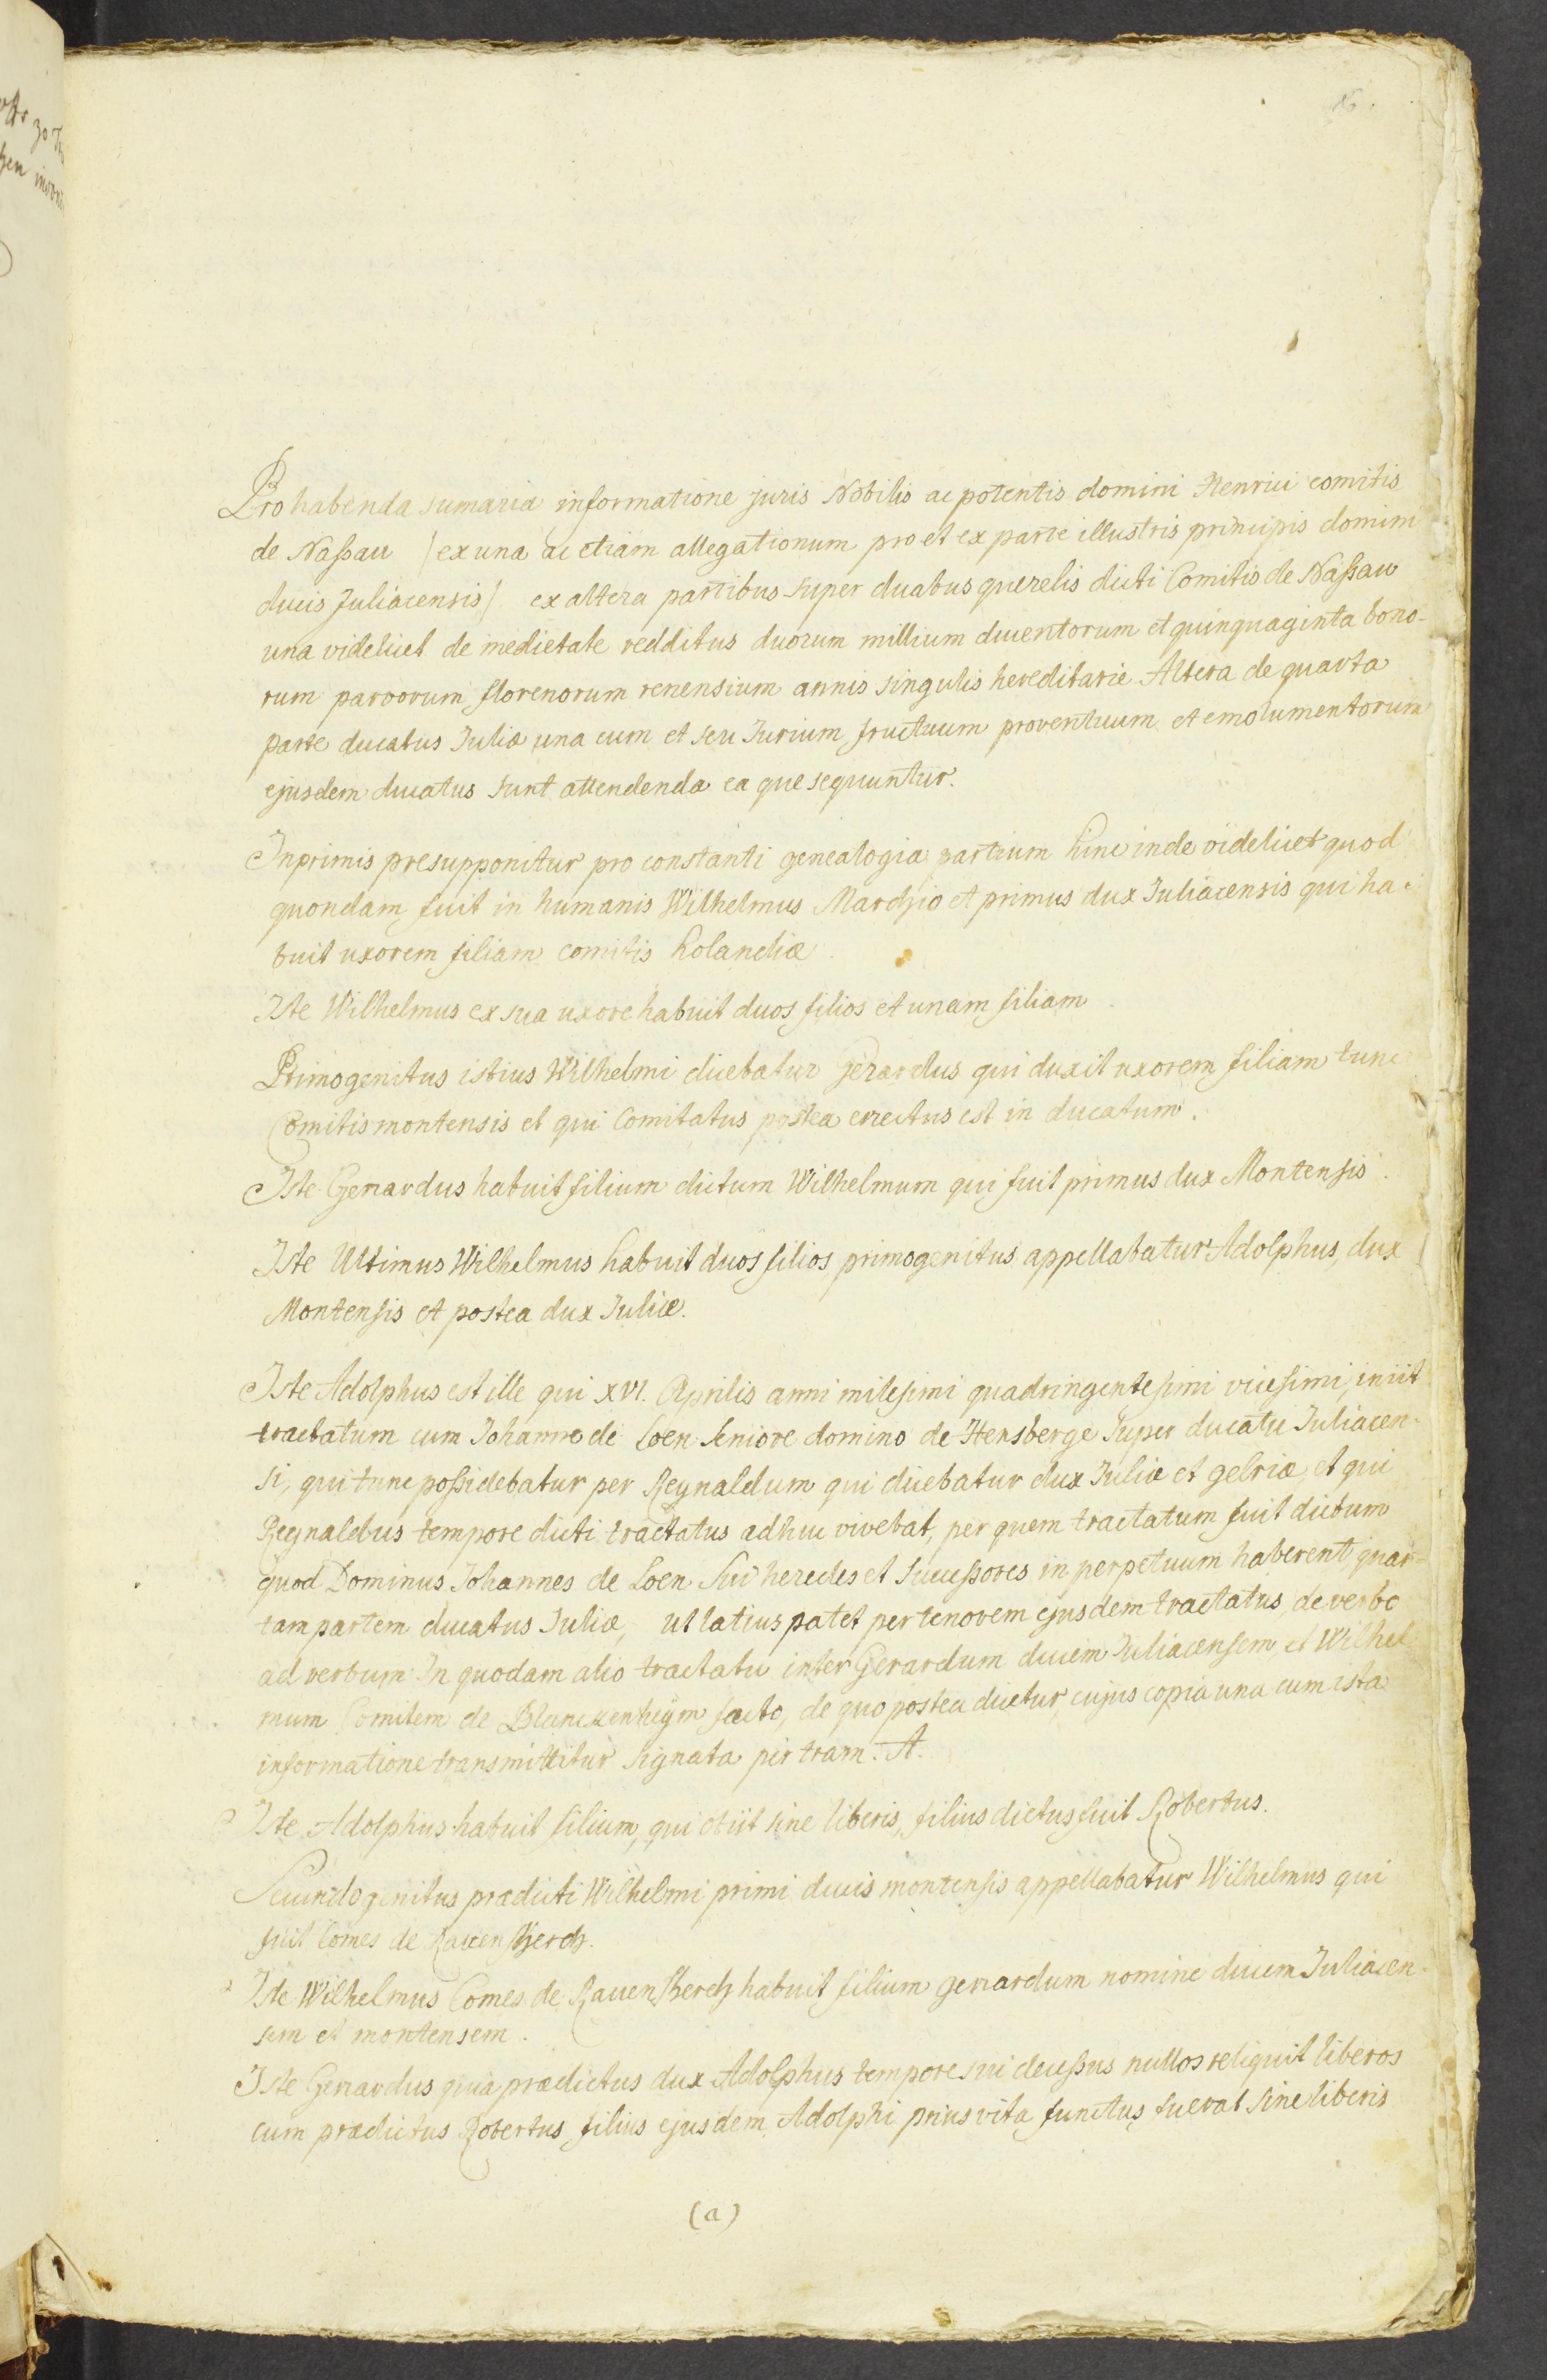 Pro habenda sumaria informatione juris Nobilis ac potentis domini Henrici comitis
de Naßau /ex una ac etiam allegationum pro et ex parte illustris principis domini
ducis Juliacensis/ ex altera partibus super duabus querelis dicti Comitis de Naßau
una videlicet de medietate redditus duorum millium ducentorum et quinquaginta bono-
rum parvorum florenorum renensium annis singulis hereditarie Altera de quarta
parte ducatus Juliæ una cum et seu Jurium fructuum proventuum et emolumentorum
ejusdem ducatus sunt attendenda ea que sequuntur.
Inprimis presupponitur pro constanti genealogia partium hinc inde videlicet quod
quondam fuit in humanis Wilhelmus Marchio et primus dux Juliacensis qui ha-
buit uxorem filiam comitis holandiæ.
Iste Wilhelmus ex sua uxore habuit duos filios et unam filiam.
Primogenitus istius Wilhelmi dicebatur Gerardus qui duxit uxorem filiam tunc
Comitis montensis et qui Comitatus postea erectus est in ducatum.
Iste Gerardus habuit filium dictum Wilhelmum qui fuit primus dux Montensis.
Iste Ultimus Wilhelmus habuit duos filios, primogenitus appellabatur Adolphus, dux
Montensis et postea dux Juliæ.
Iste Adolphus est ille qui XVI. Aprilis anni milesimi quadringentesimi vicesimi, iniit
tractatum cum Johanne de Loen Seniore domino de Hensberge super ducatu Juliacen-
si, qui tunc poßidebatur per Reynaldum qui dicebatur dux Juliæ et gelriæ, et qui
Reynaldus tempore dicti tractatus adhuc vivebat, per quem tractatum fuit dictum
quod Dominus Johannes de Loen sui heredes et Succeßores in perpetuum haberent quar=
tam partem ducatus Juliæ, ut latius patet per tenorem ejusdem tractatus, de verbo
ad verbum In quodam alio tractatu inter Gerardum ducem Juliacensem, et Wilhel
mum Comitem de Blanckenheijm facto, de quo postea dicetur, cujus copia una cum ista
informatione transmittitur signata per tram. A.
Iste Adolphus habuit filium, qui obiit sine liberis, filius dictus fuit Robertus.
Secundogenitus prædicti Wilhelmi primi ducis montensis appellabatur Wilhelmus qui
fuit Comes de Ravensberch.
Iste Wilhelmus Comes de Ravensberch habuit filium gerardum nomine ducem Juliacen-
sem et montensem.
Iste Gerardus quia prædictus dux Adolphus tempore sui deceßus nullos reliquit liberos
cum prædictus Robertus filius ejusdem Adolphi prius vita functus fuerat sine liberis
(a)